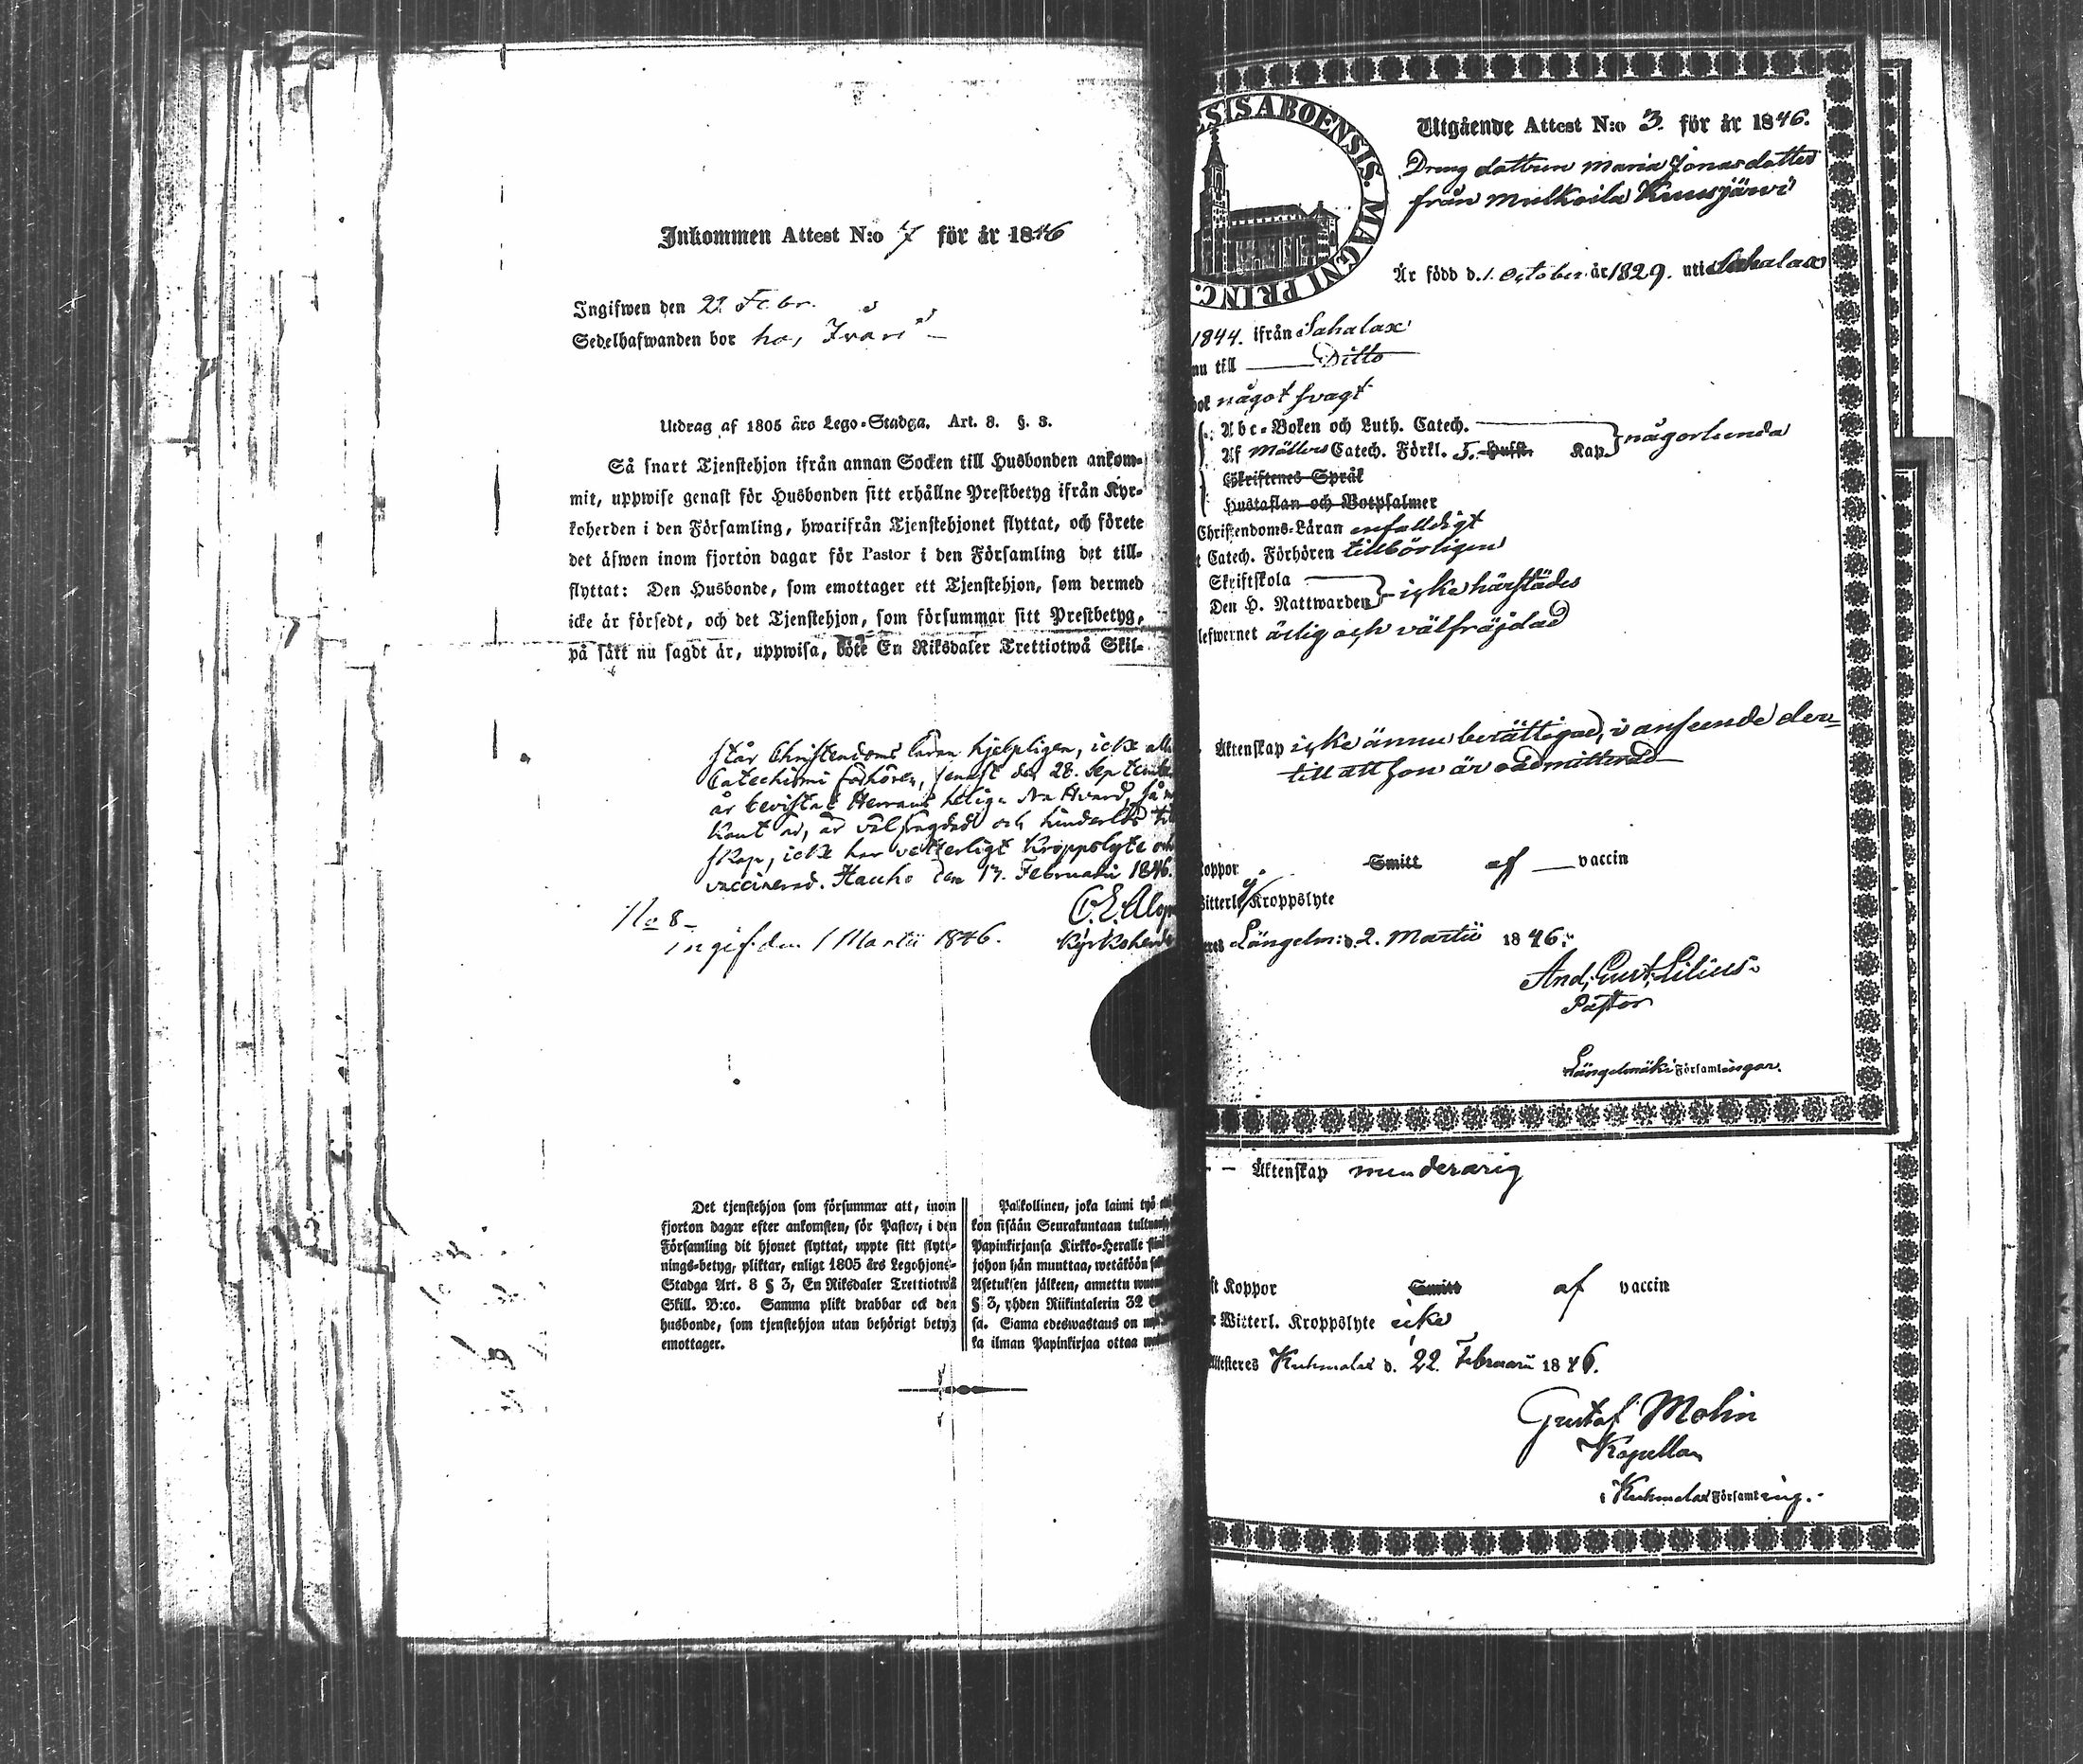 Inkommen Attest N:o 7 för år 1846
Ingifwen den 22 Febr.
Sedelhafwanden bor hos
Utdrag af 1805 års Lego-Stadga. Art. 8. §. 3.
Så snart Tjenstehjon ifrån annan Socken till Husbonden ankom-
mit, uppwise genast för Husbonden sitt erhållne Prestbetyg ifrån Kyr-
koherden i den Församling, hwarifrån Tjenstehjonet flyttat, och förete
det äfwen inom fjorton dagar för Pastor i den Församling det till-
flyttat: Den Husbonde, som emottager ett Tjenstehjon, som dermed
icke är försedt, och det Tjenstehjon, som försummar sitt Prestbetyg,
på sätt nu sagdt är, uppwisa, böte En Riksdaler Trettiotwå Skil-
står Christendoms läran hjelpligen, icke
Catechismi förhören, senast den 28. Septemb
år bevistat Herrans heliga Nattvard, så
kant är, är välfrägdad och hinderlös
skap, icke har vetterligt kroppslyte och
vaccinerad. Hauho den 17. Februari 1846.
Kyrkoherde
No 8
Ingif. den 1 Martii 1846.
Det tjenstehjon som försummar att, inom
fjorton dagar efter ankomsten, för Pastor, i den
Församling dit hjonet flyttat, uppte sitt flytt-
nings-betyg, pliktar, enligt 1805 års Legohjons-
Stadga Art. 8 § 3, En Riksdaler Trettiotwå
Skill. B:co. Samma plikt drabbar ock den
husbonde, som tjenstehjon utan behörigt betyg
emottager.
Palkollinen, joka laimi työ
kon sisään Seurakuntaan
Papinkirjansa Kirkko-Heralle
johon hän muuttaa, wetäköön
Asetuksen jälkeen, annettu
§ 3, yhden Riikintalerin 32
sa. Sama edeswastaus on
ka ilman Papinkirjaa ottaa
SIS ABOENSIS. MAGNI PRINC.
Utgående Attest N:o 3. för år 1846.
Dreng dottren Maria Jonasdotter
från Mulkoila Kuusjärvi
Är född d. 1. October år 1829. uti Sahalax
1844. ifrån Sahalax
nu till Ditto
bok något svagt
Abc-Boken och Luth. Catech.
Af Möllers Catech. Förkl. 5. Hufst. Kap. någorlunda
Skriftenes Språk
Hustaflan och Botpsalmer
Christendoms-Läran enfaldigt
Catech. Förhören tillbörligen
Skriftskola
Den H. Nattwarden icke härstädes
lefwernet ärlig och välfräjdad
Äktenskap icke ännu berättigad, i anseende der-
till att hon är oadmitterad
koppor Smitt af vaccin
Witterl. ej Kroppslyte
Längelm: d. 2. Martii 1846.
And. Gust. Lilius.
Pastor
Längelmäki Församlingar.
Äktenskap minderårig
Koppor Smitt af vaccin
Witterl. Kroppslyte icke
Attesteres Kuhmalax d. 22. Februarii 1846.
Gustaf Molin
Kapellan
i Kuhmalax Församling.